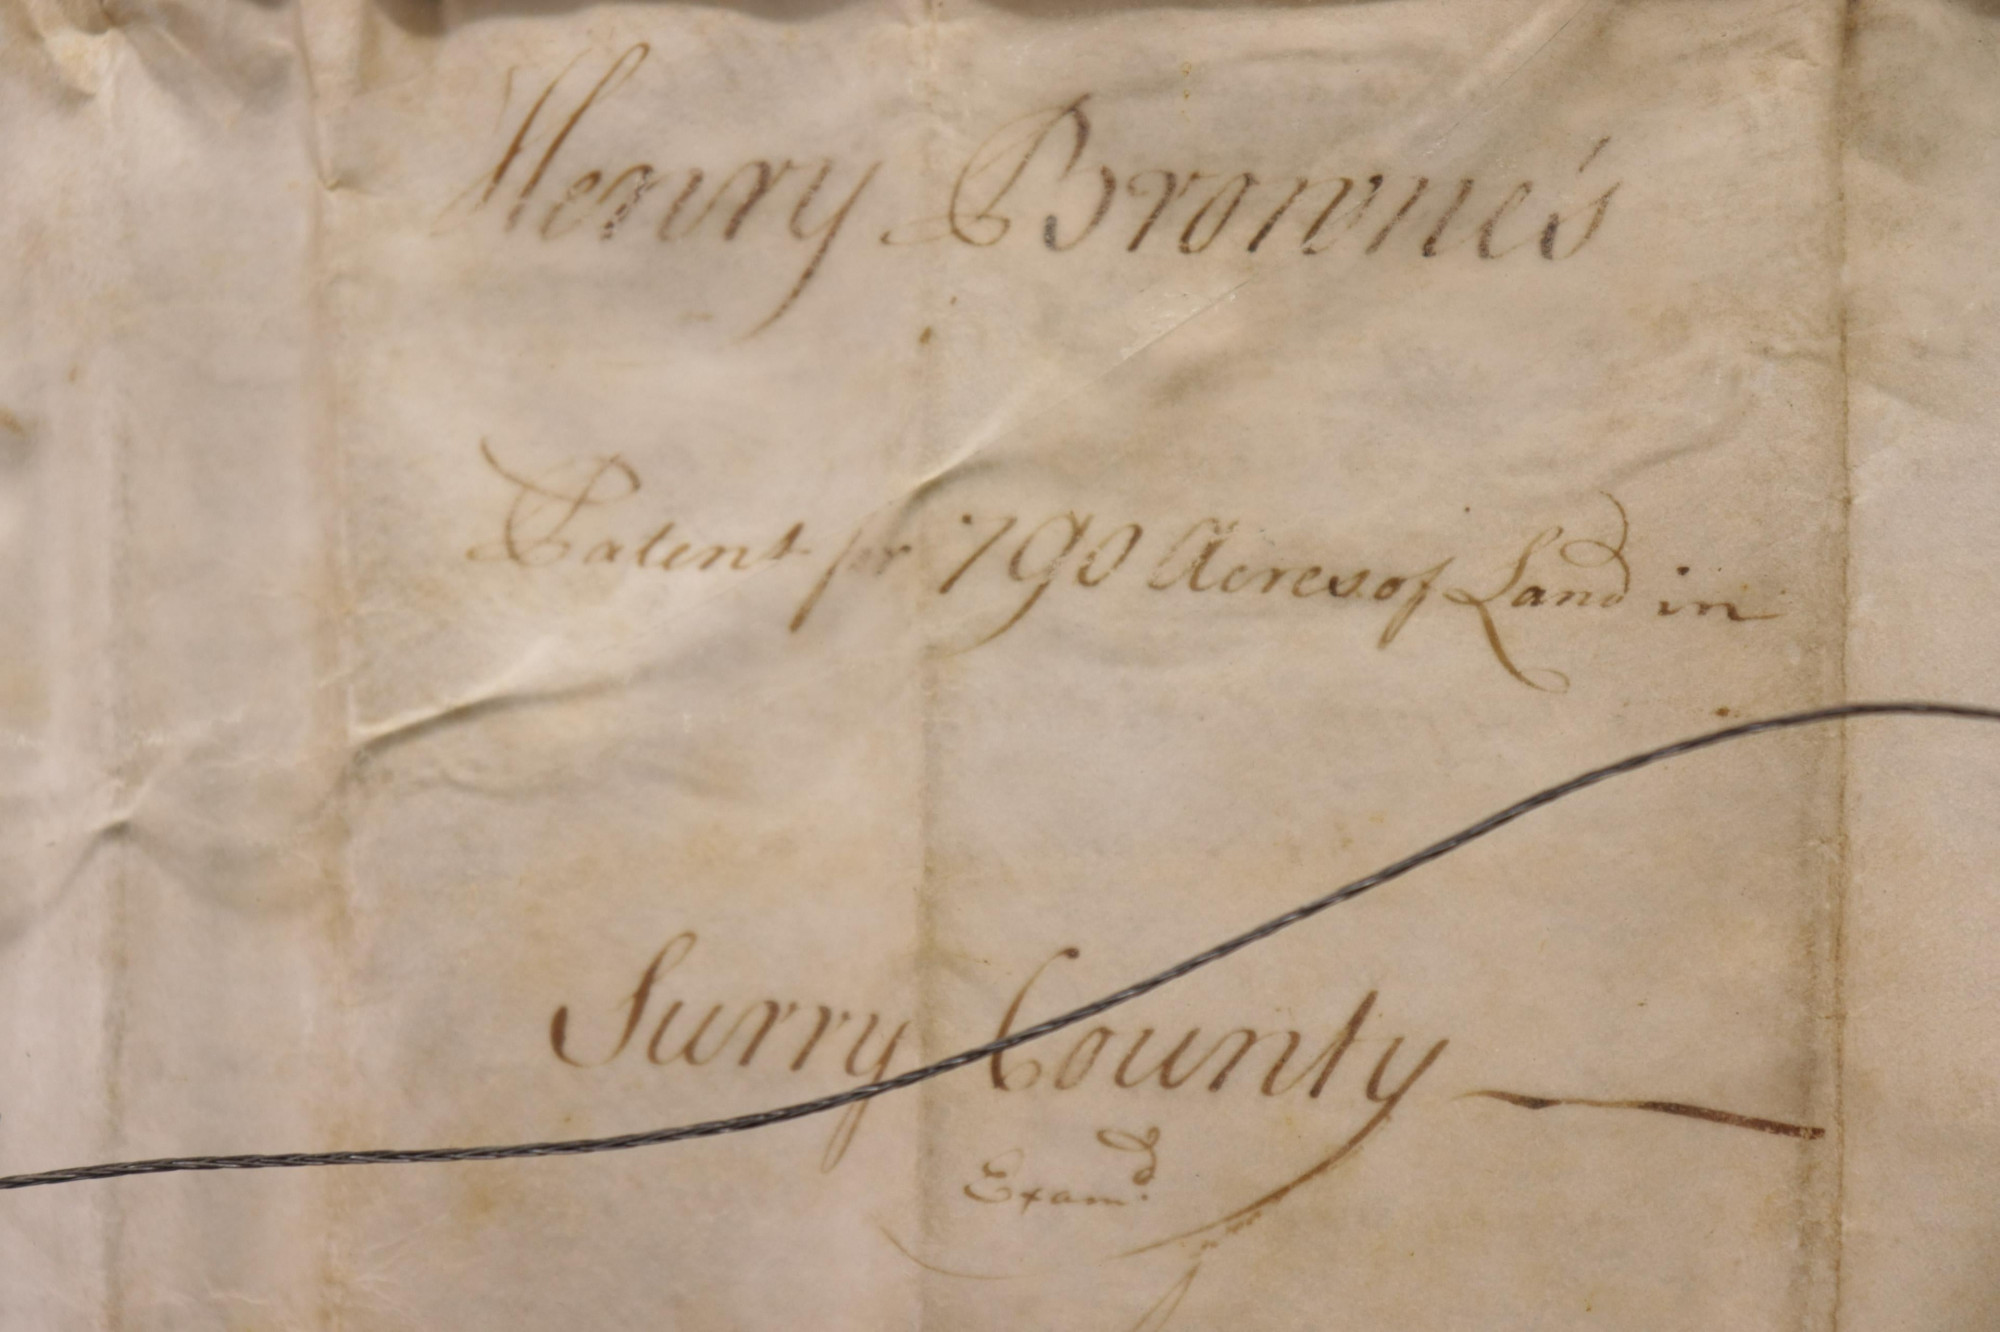 Henry Browne's
Patent for 790 Acres of Land in
Surry County
Exam.d